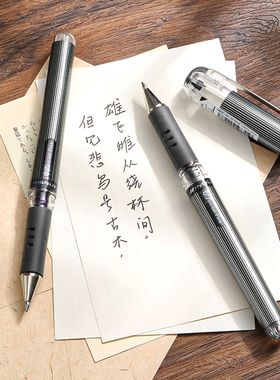 但见悲鸟号古木，
雄飞雌从绕林间。